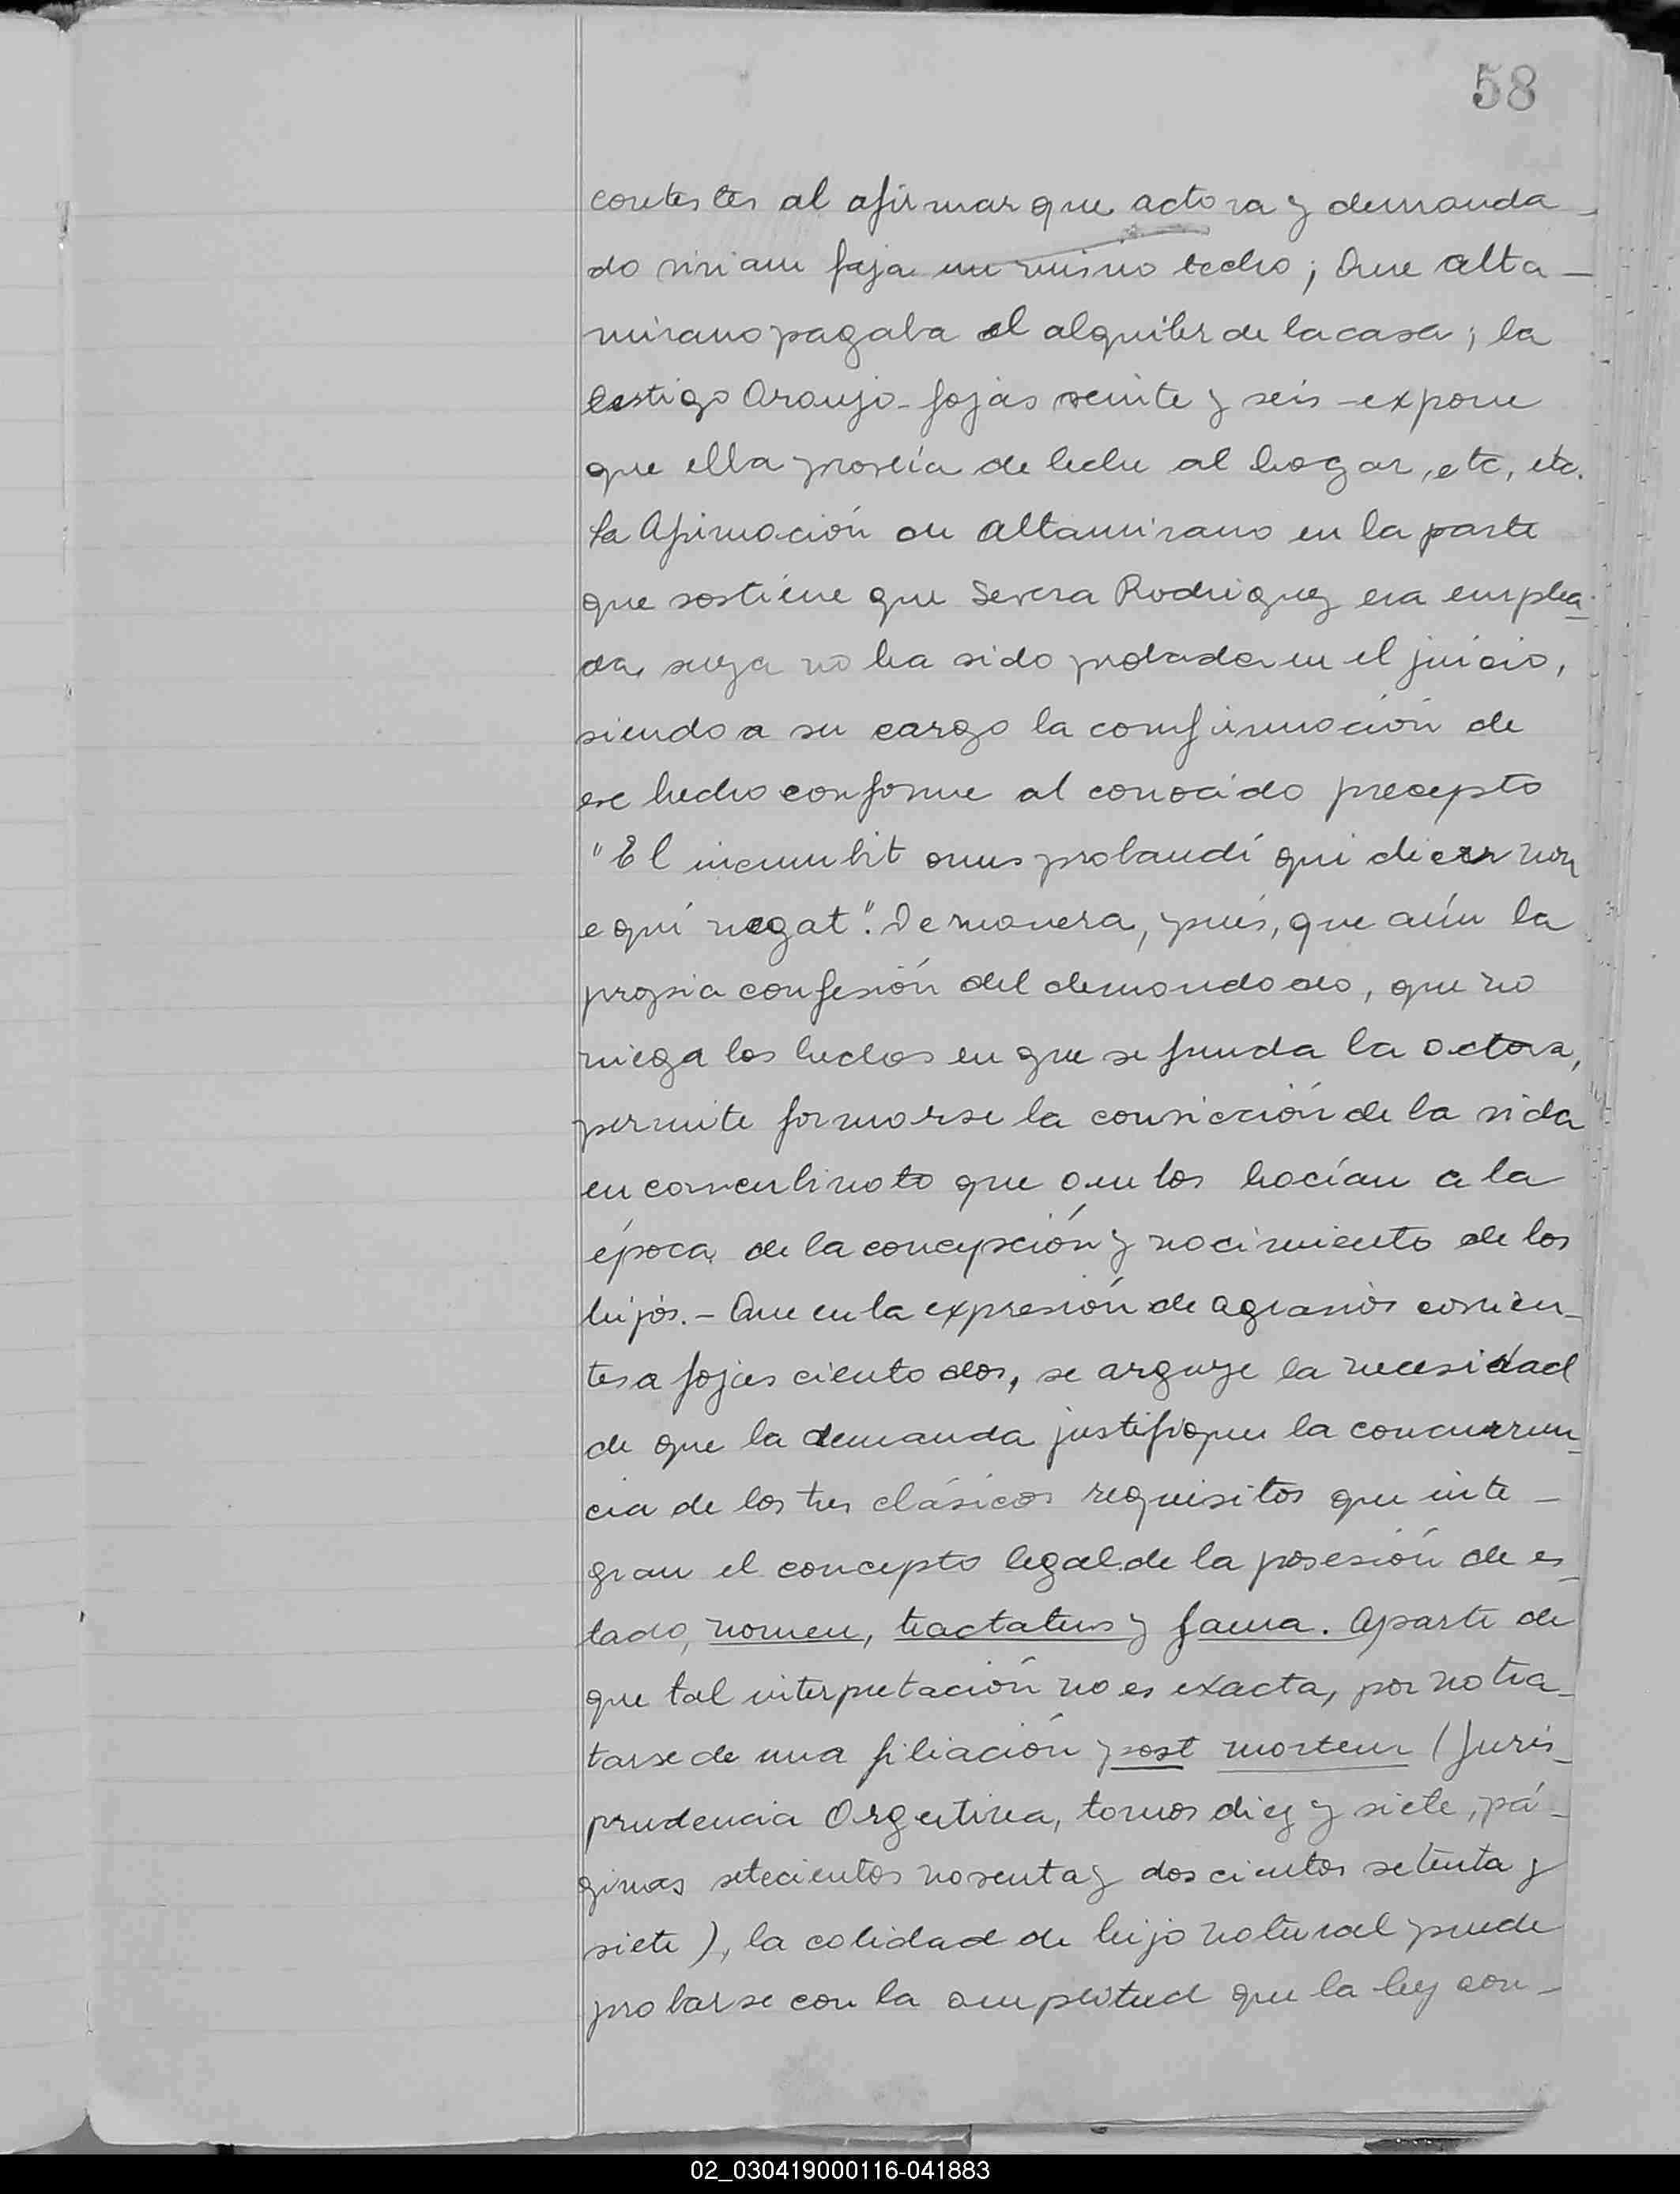 58
contestes al afirmar que actora y demanda-
do vivian bajo un mismo techo; Que Alta-
mirano pagaba el alquiler de la casa; la
testigo Araujo - fojas veinte y seis - expone
que ella proveía de leche al hogar, etc, etc.
La Afirmación de Altamirano en la parte
que sostiene que Severa Rodriguez era emplea-
da suya no ha sido probada en el juicio,
siendo a su cargo la confirmación de
ese hecho conforme al conocido precepto
"El incumbit onus probandi qui dicer non
e qui negat". De manera, pués, que aún la
propia confesión del demandado, que no
niega los hechos en que se funda la actora,
permite formarse la convicción de la vida
en concubinato que ambos hacían a la
época de la concepción y nacimiento de los
hijos. - Que en la expresión de agravios corrien-
tes a fojas ciento dos, se arguye la necesidad
de que la demanda justifique la concurren-
cia de los tres clásicos requisitos que inte-
gran el concepto legal de la posesión de es-
tado, nomen, tractatus y fama. Aparte de
que tal interpretación no es exacta, por no tra-
tarse de una filiación post mortem (Juris-
prudencia Argentina, tomos diez y siete, pá-
ginas setecientos noventa y doscientos setenta y
siete), la calidad de hijo natural puede
probarse con la amplitud que la ley con-
02_030419000116-041883